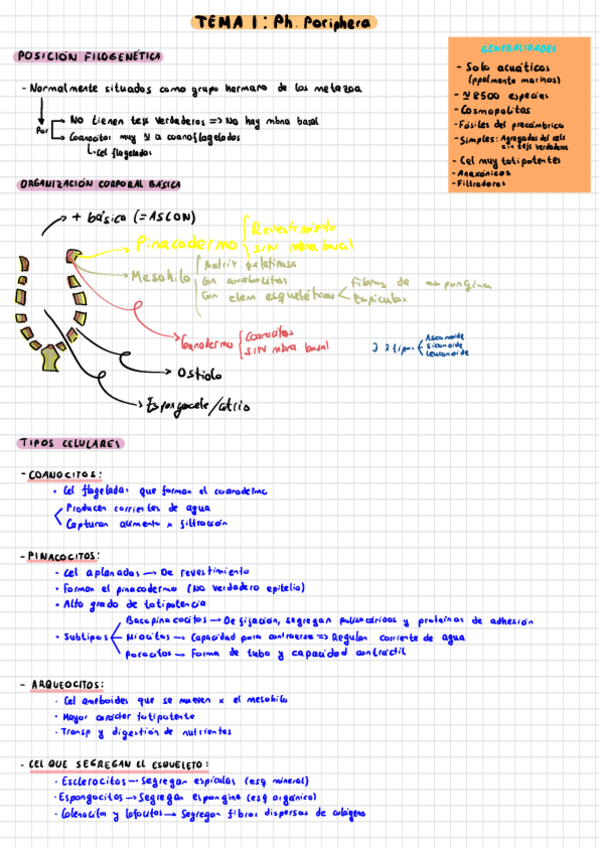 TEMA 1: Ph. Poriphera
POSICIÓN FILOGENÉTICA
- Normalmente situados como grupo hermano de los metazoa
Por
→ No tienen tejs verdaderos => No hay mbna basal
→ Coanocitos muy ≃ a coanoflagelados
↳ Cel flageladas
GENERALIDADES
- Solo acuáticos
(ppalmente marinos)
- ≃ 8500 especies
- Cosmopolitas
- Fósiles del precámbrico
- Simples: Agregados de cels
sin tejs verdaderos
- Cel muy totipotentes
- Anaxónicos
- Filtradores
ORGANIZACIÓN CORPORAL BÁSICA
+ básica (= ASCON)
Pinacodermo { Revestimiento
SIN mbna basal
Mesohilo { Matriz gelatinosa
Con amebocitos
Con elem esqueléticos < Fibras de espongina
Espículas
Coanodermo { Coanocitos
SIN mbna basal
3 tipos { Asconoide
Siconoide
Leuconoide
Ostiolo
Espongocele/atrio
TIPOS CELULARES
- COANOCITOS:
• Cel flageladas que forman el coanodermo
Producen corrientes de agua
Capturan alimento x filtración
- PINACOCITOS:
• Cel aplanadas → De revestimiento
• Forman el pinacodermo (NO verdadero epitelio)
• Alto grado de totipotencia
• Subtipos
Basopinacocitos → De fijación, segregan polisacáridos y proteínas de adhesión
Miocitos → Capacidad para contraerse => Regulan corriente de agua
Porocitos → Forma de tubo y capacidad contráctil
- ARQUEOCITOS:
• Cel ameboides que se mueven x el mesohilo
• Mayor carácter totipotente
• Transp y digestión de nutrientes
- CEL QUE SEGREGAN EL ESQUELETO:
• Esclerocitos → Segregan espículas (esq mineral)
• Espongocitos → Segregan espongina (esq orgánico)
• Colenocitos y lofocitos → Segregan fibras dispersas de colágeno